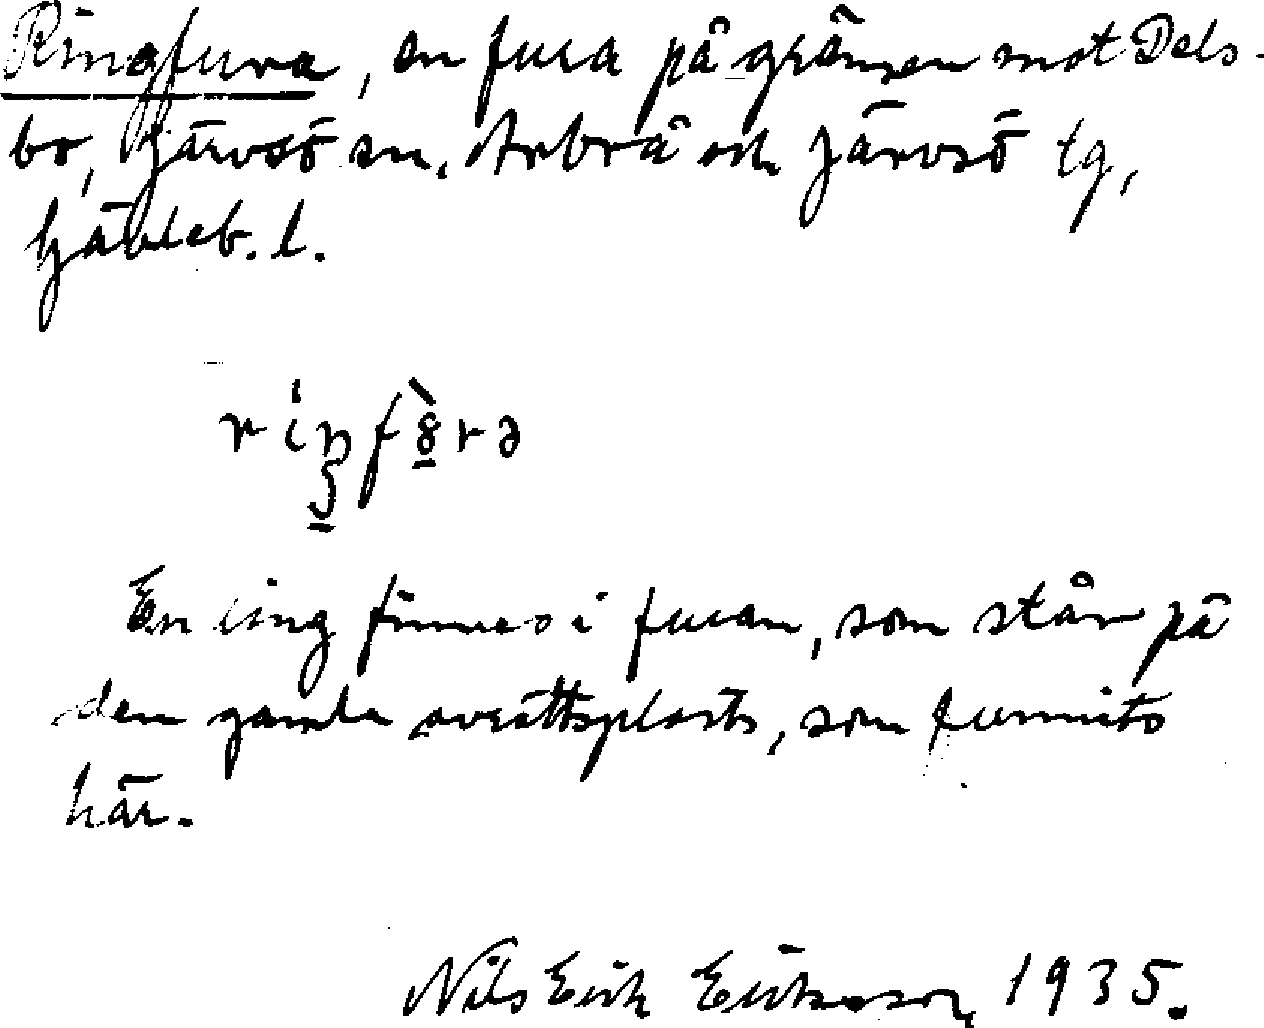 Ringfura, en fura på gränsen mot Dels-
bo, Järvsö sn, Arbrå och Järvsö tg,
Gävleb. l.
En ring finnes i furan, som står på
den gamla avrättsplats, som funnits
här.
Nils Erik Eriksson, 1935.